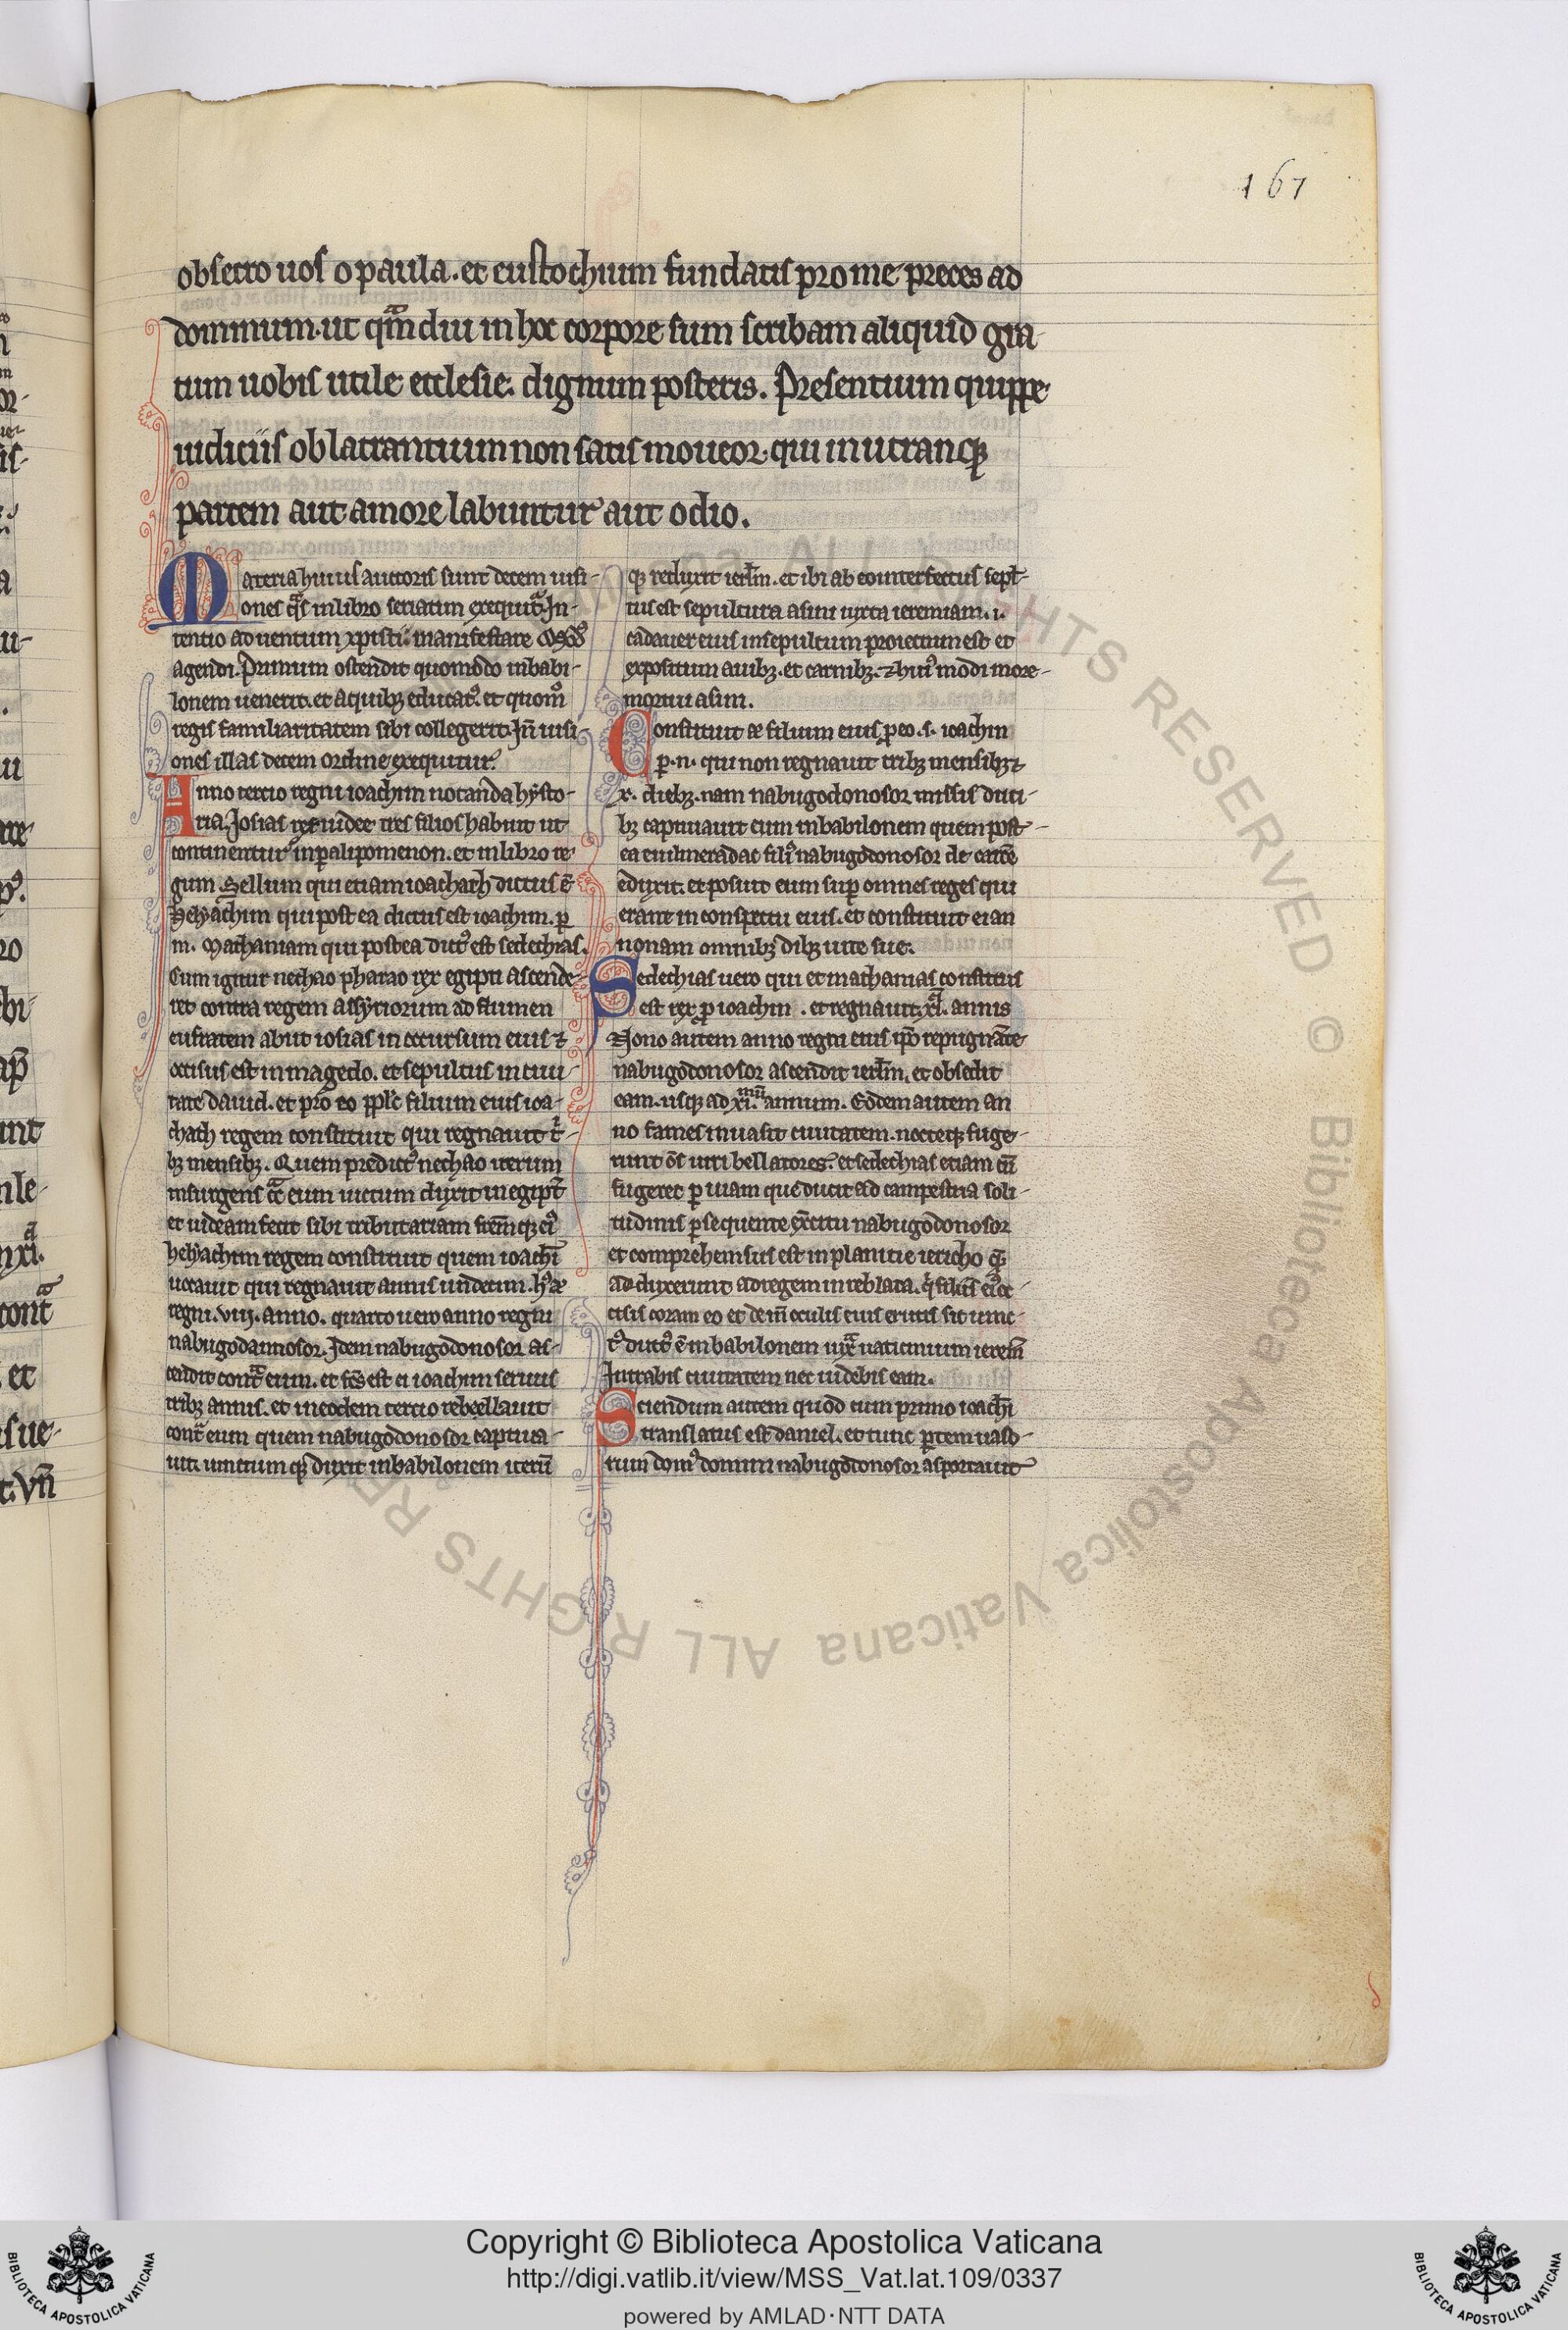 167
obsecro uos o paula. et eustochium fundatis pro me preces ad
dominum. ut qm̃diu in hoc corpore sum scribam aliquid gra-
tum uobis utile ecclesie. dignum posteris. Presentium quippe
iudiciis oblatrantium non satis moueor. qui in utranq;
partem aut amore labuntur aut odio.
Materia huius auctoris sunt decem uisi-
ones in libro seriatim exequit̃. In-
tentio aduentum xpisti manifestare
agendi. Primum ostendit quomodo in babi-
lonem uenerit. et a quib; educat᷒. et quom̊
regis familiaritatem sibi collegerit. Iñ uisi-
ones illas decem ordine exequitur.
Anno tercio regni ioachim notanda hysto-
ria. Iosias rex iudee tres filios habuit ut
continentur in ꝑalipomenon. et in libro re
gum. Sellum qui etiam ioachath dictus ẽ
helyachim qui post ea dictus est ioachim. ꝑ
m. Mathaniam qui postea dict᷒ est sedechias.
Cum igitur nechao pharao rex egipti ascende-
ret contra regem assyriorum ad flumen
eufratem abiit iosias in occursum eius ⁊
occisus est in magedo. et sepultus in ciui-
tate dauid. et pro eo ppl̃s filium eius ioa-
chath regem constituit qui regnauit t̃-
b; mensib;. Quem predict᷒ nechao iterum
insurgens eum uictum duxit in egipt̃
et iudeam fecit sibi tributariam frem̃q; ei᷒
helyachim regem constituit quem ioachĩ
uocauit qui regnauit annis undecim.
regni. viij. anno. quarto uero anno regni
nabugodannosor. Idem nabugodonosor as-
cendit cont̃ eum. et fc̃s est ei ioachim seruus
trib; annis. et in eodem tercio rebeellauit
cont̃ eum quem nabugodonosor captiua-
uit. uinctum q; duxit in babilonem iterũ
q; reduxit ierl̃m. et ibi ab eo interfectus sepl̃-
tus est sepultura asini iuxta ieremiam. i.
cadauer eius insepultum proiectum est et
expositum auib;. et carnib;. ⁊ hui᷒ modi more-
mortui asini.
Constituit filium eius ꝓ eo. s. ioachin
ꝑ. n. qui non regnauit trib; mensib; ⁊
x. dieb;. nam nabugodonosor missis duci-
b; captiuauit eum in babilonem quem post-
ea euilmeradac fili᷒ nabugodonosor de carc̃e
eduxit. et posuit eum suꝑ omnes reges qui
erant in conspectu eius. et constituit ei an
nonam omnib; dib; uite sue.
Sedechias uero qui et mathanias constitus
est rex ꝓ ioachin. et regnauit. xi. annis
Nono autem anno regni eius ip̃o repugnãte
nabugodonosor ascendit ierl̃m. et obsedit
eam. usq; ad xi. annum. Eodem autem an
no fames inuasit ciuitatem. nocteq; fuge-
runt õs uiri bellatores. et sedechias etiam cũ
fugeret ꝑ uiam que ducit ad campestria soli-
tudinis ꝑsequente ex̃citu nabugodonosor
et comprehemsus est in planitie iericho
adduxerunt ad regem in reblata.
cisis coram eo et deiñ oculis eius erutis sic uinc-
t᷒ duct᷒ ẽ in babilonem iux̃ uaticinium ieremĩ
Intrabis ciuitatem nec uidebis eam.
Sciendum autem quod cum primo ioachĩ
translatus est daniel. et tunc ꝑtem uaso-
rum dom᷒ domini nabugodonosor asportauit
Copyright © Biblioteca Apostolica Vaticana
http://digi.vatlib.it/view/MSS_Vat.lat.109/0337
powered by AMLAD·NTT DATA